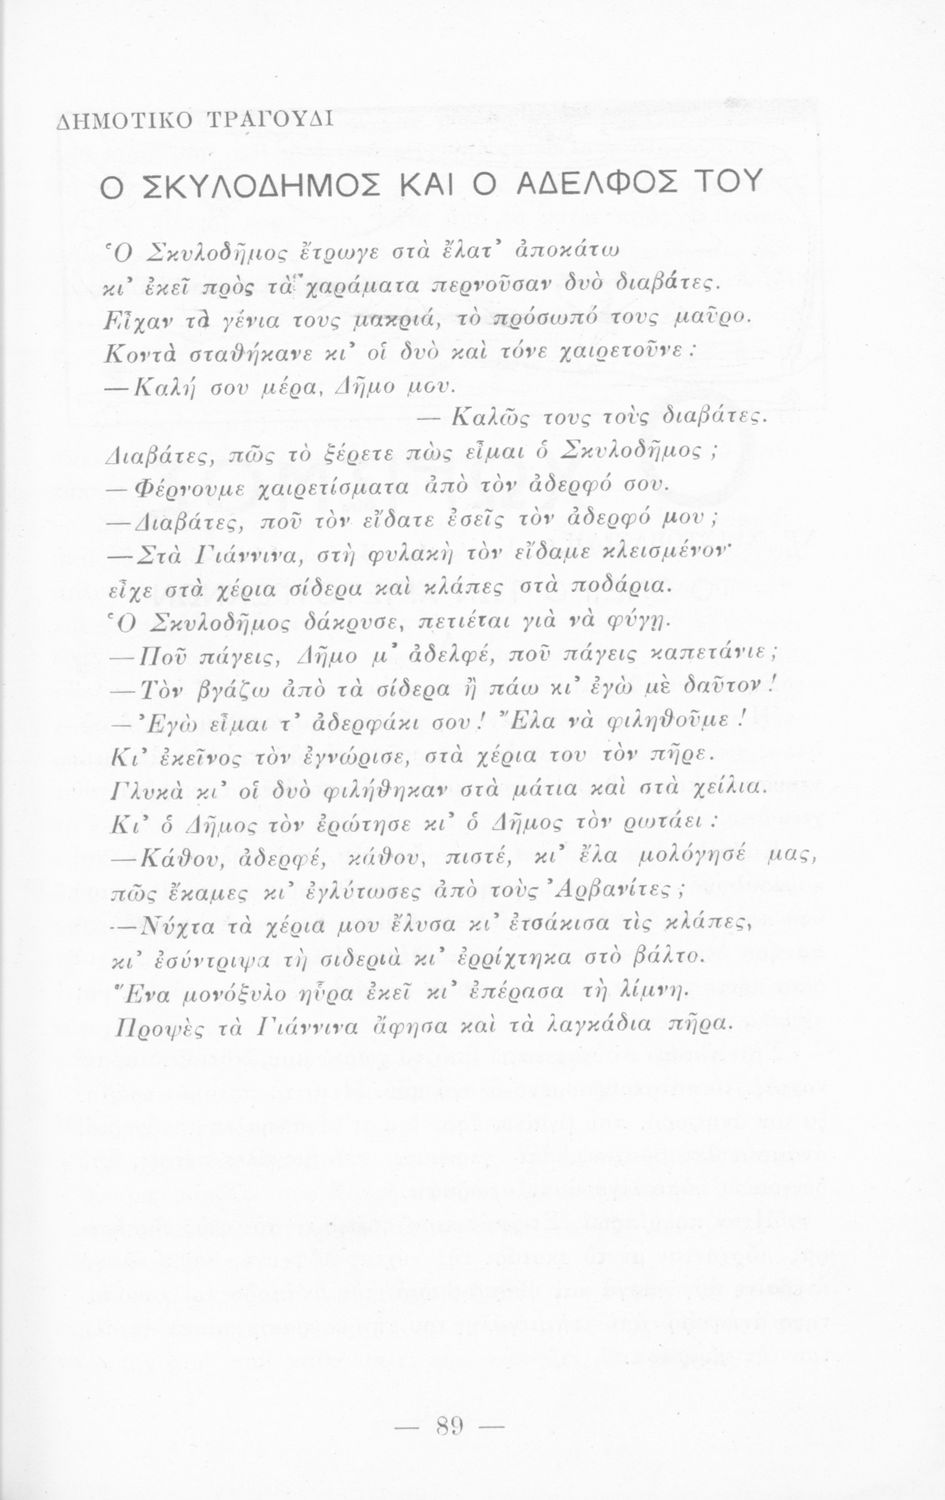 ΔΗΜΟΤΙΚΟ ΤΡΑΓΟΥΔΙ
Ο ΣΚΥΛΟΔΗΜΟΣ ΚΑΙ Ο ΑΔΕΛΦΟΣ ΤΟΥ
Ὁ Σκυλοδῆμος ἔτρωγε στὰ ἔλατ᾿ ἀποκάτω
κι᾿ ἐκεῖ πρὸς τὰ χαράματα περνοῦσαν δυὸ διαβάτες.
Εἶχαν τὰ γένια τους μακριά, τὸ πρόσωπό τους μαῦρο.
Κοντὰ σταθήκανε κι᾿ οἱ δυὸ καὶ τόνε χαιρετοῦνε :
— Καλή σου μέρα, Δῆμο μου.
— Καλῶς τους τοὺς διαβάτες.
Διαβάτες, πῶς τὸ ξέρετε πὼς εἶμαι ὁ Σκυλοδῆμος ;
— Φέρνουμε χαιρετίσματα ἀπὸ τὸν ἀδερφό σου.
— Διαβάτες, ποῦ τὸν εἴδατε ἐσεῖς τὸν ἀδερφό μου ;
— Στὰ Γιάννινα, στὴ φυλακὴ τὸν εἴδαμε κλεισμένον·
εἶχε στὰ χέρια σίδερα καὶ κλάπες στὰ ποδάρια.
Ὁ Σκυλοδῆμος δάκρυσε, πετιέται γιὰ νὰ φύγῃ.
— Ποῦ πάγεις, Δῆμο μ᾿ ἀδελφέ, ποῦ πάγεις καπετάνιε ;
— Τὸν βγάζω ἀπὸ τὰ σίδερα ἢ πάω κι᾿ ἐγὼ μὲ δαῦτον !
— Ἐγὼ εἶμαι τ᾿ ἀδερφάκι σου ! Ἔλα νὰ φιληθοῦμε !
Κι᾿ ἐκεῖνος τὸν ἐγνώρισε, στὰ χέρια του τὸν πῆρε.
Γλυκὰ κι᾿ οἱ δυὸ φιλήθηκαν στὰ μάτια καὶ στὰ χείλια.
Κι᾿ ὁ Δῆμος τὸν ἐρώτησε κι᾿ ὁ Δῆμος τὸν ρωτάει :
— Κάθου, ἀδερφέ, κάθου, πιστέ, κι᾿ ἔλα μολόγησέ μας,
πῶς ἔκαμες κι᾿ ἐγλύτωσες ἀπὸ τοὺς Ἀρβανίτες ;
— Νύχτα τὰ χέρια μου ἔλυσα κι᾿ ἐτσάκισα τὶς κλάπες,
κι᾿ ἐσύντριψα τὴ σιδεριὰ κι᾿ ἐρρίχτηκα στὸ βάλτο.
Ἕνα μονόξυλο ηὗρα ἐκεῖ κι᾿ ἐπέρασα τὴ λίμνη.
Προψὲς τὰ Γιάννινα ἄφησα καὶ τὰ λαγκάδια πῆρα.
— 89 —